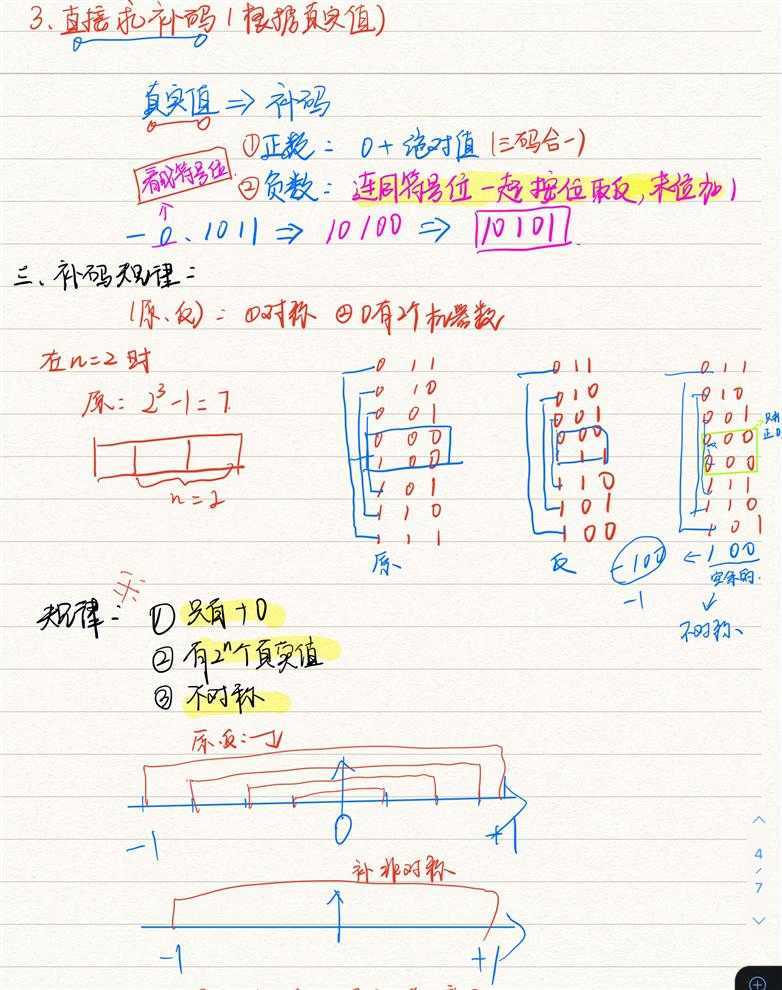 3、直接求补码(根据真实值)
真实值 ⇒ 补码
①正数: 0+绝对值 (三码合一)
看成符号位
②负数: 连同符号位一起按位取反,末位加1
-0.1011 ⇒ 10100 ⇒ 10101
三、补码规律:
(原、反): ①对称 ②0有2个机器数
在n=2时
原: 2³-1=7
n=2
0 1 1
0 1 0
0 0 1
0 0 0
1 0 0
1 0 1
1 1 0
1 1 1
原
0 1 1
0 1 0
0 0 1
0 0 0
1 1
1 1 0
1 0 1
1 0 0
反
0 1 1
0 1 0
0 0 1
0 0 0
0 0 0
1 1 1
1 1 0
1 0 1
-100 ← 1 00
-1
不对称、
规律: ① 只有+0
② 有2ⁿ个真实值
③ 不对称
原反:
-1 0 +1
补非对称
-1 +1
4/7